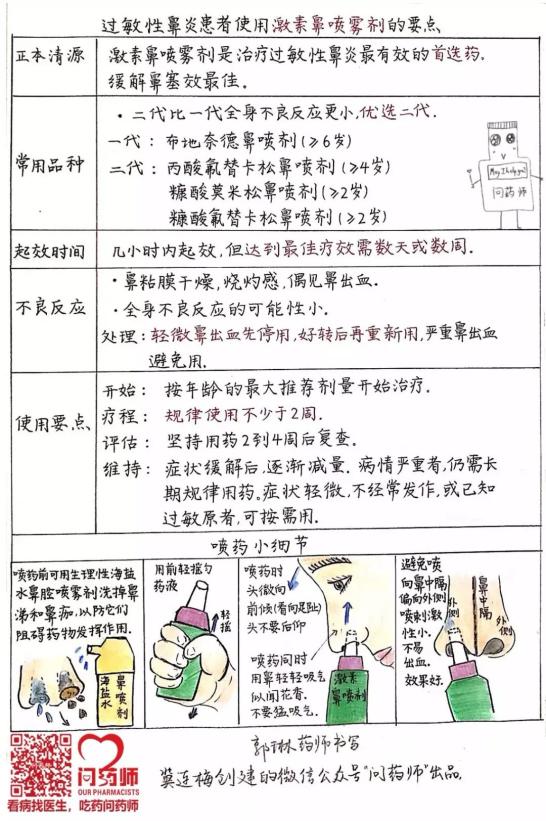 过敏性鼻炎患者使用激素鼻喷雾剂的要点
正本清源
激素鼻喷雾剂是治疗过敏性鼻炎最有效的首选药.
缓解鼻塞效最佳.
常用品种
·二代比一代全身不良反应更小,优选二代.
一代:布地奈德鼻喷剂(≥6岁)
二代:丙酸氟替卡松鼻喷剂(≥4岁)
糠酸莫米松鼻喷剂(≥2岁)
糠酸氟替卡松鼻喷剂(≥2岁)
May I help you?
问药师
起效时间
几小时内起效,但达到最佳疗效需数天或数周.
不良反应
·鼻粘膜干燥,烧灼感,偶见鼻出血.
·全身不良反应的可能性小.
处理:轻微鼻出血先停用,好转后再重新用,严重鼻出血
避免用.
使用要点
开始:按年龄的最大推荐剂量开始治疗.
疗程:规律使用不少于2周.
评估:坚持用药2到4周后复查.
维持:症状缓解后,逐渐减量.病情严重者,仍需长
期规律用药。症状轻微,不经常发作,或已知
过敏原者,可按需用.
喷药小细节
喷药前可用生理性海盐
水鼻腔喷雾剂洗掉鼻
涕和鼻痂,以防它们
阻碍药物发挥作用.
海盐水
鼻喷剂
用前轻摇匀
药液
轻摇
喷药时
头微向
前倾(看向足趾)
头不要后仰
喷药同时
用鼻轻轻吸气
似闻花香.
不要猛吸气.
激素
鼻喷剂
避免喷
向鼻中隔
偏向外侧
喷刺激
性小.
不易
出血.
效果好.
外侧
鼻中隔
外侧
郭琳药师书写
冀连梅创建的微信公众号"问药师"出品.
问药师
OUR PHARMACISTS
看病找医生,吃药问药师